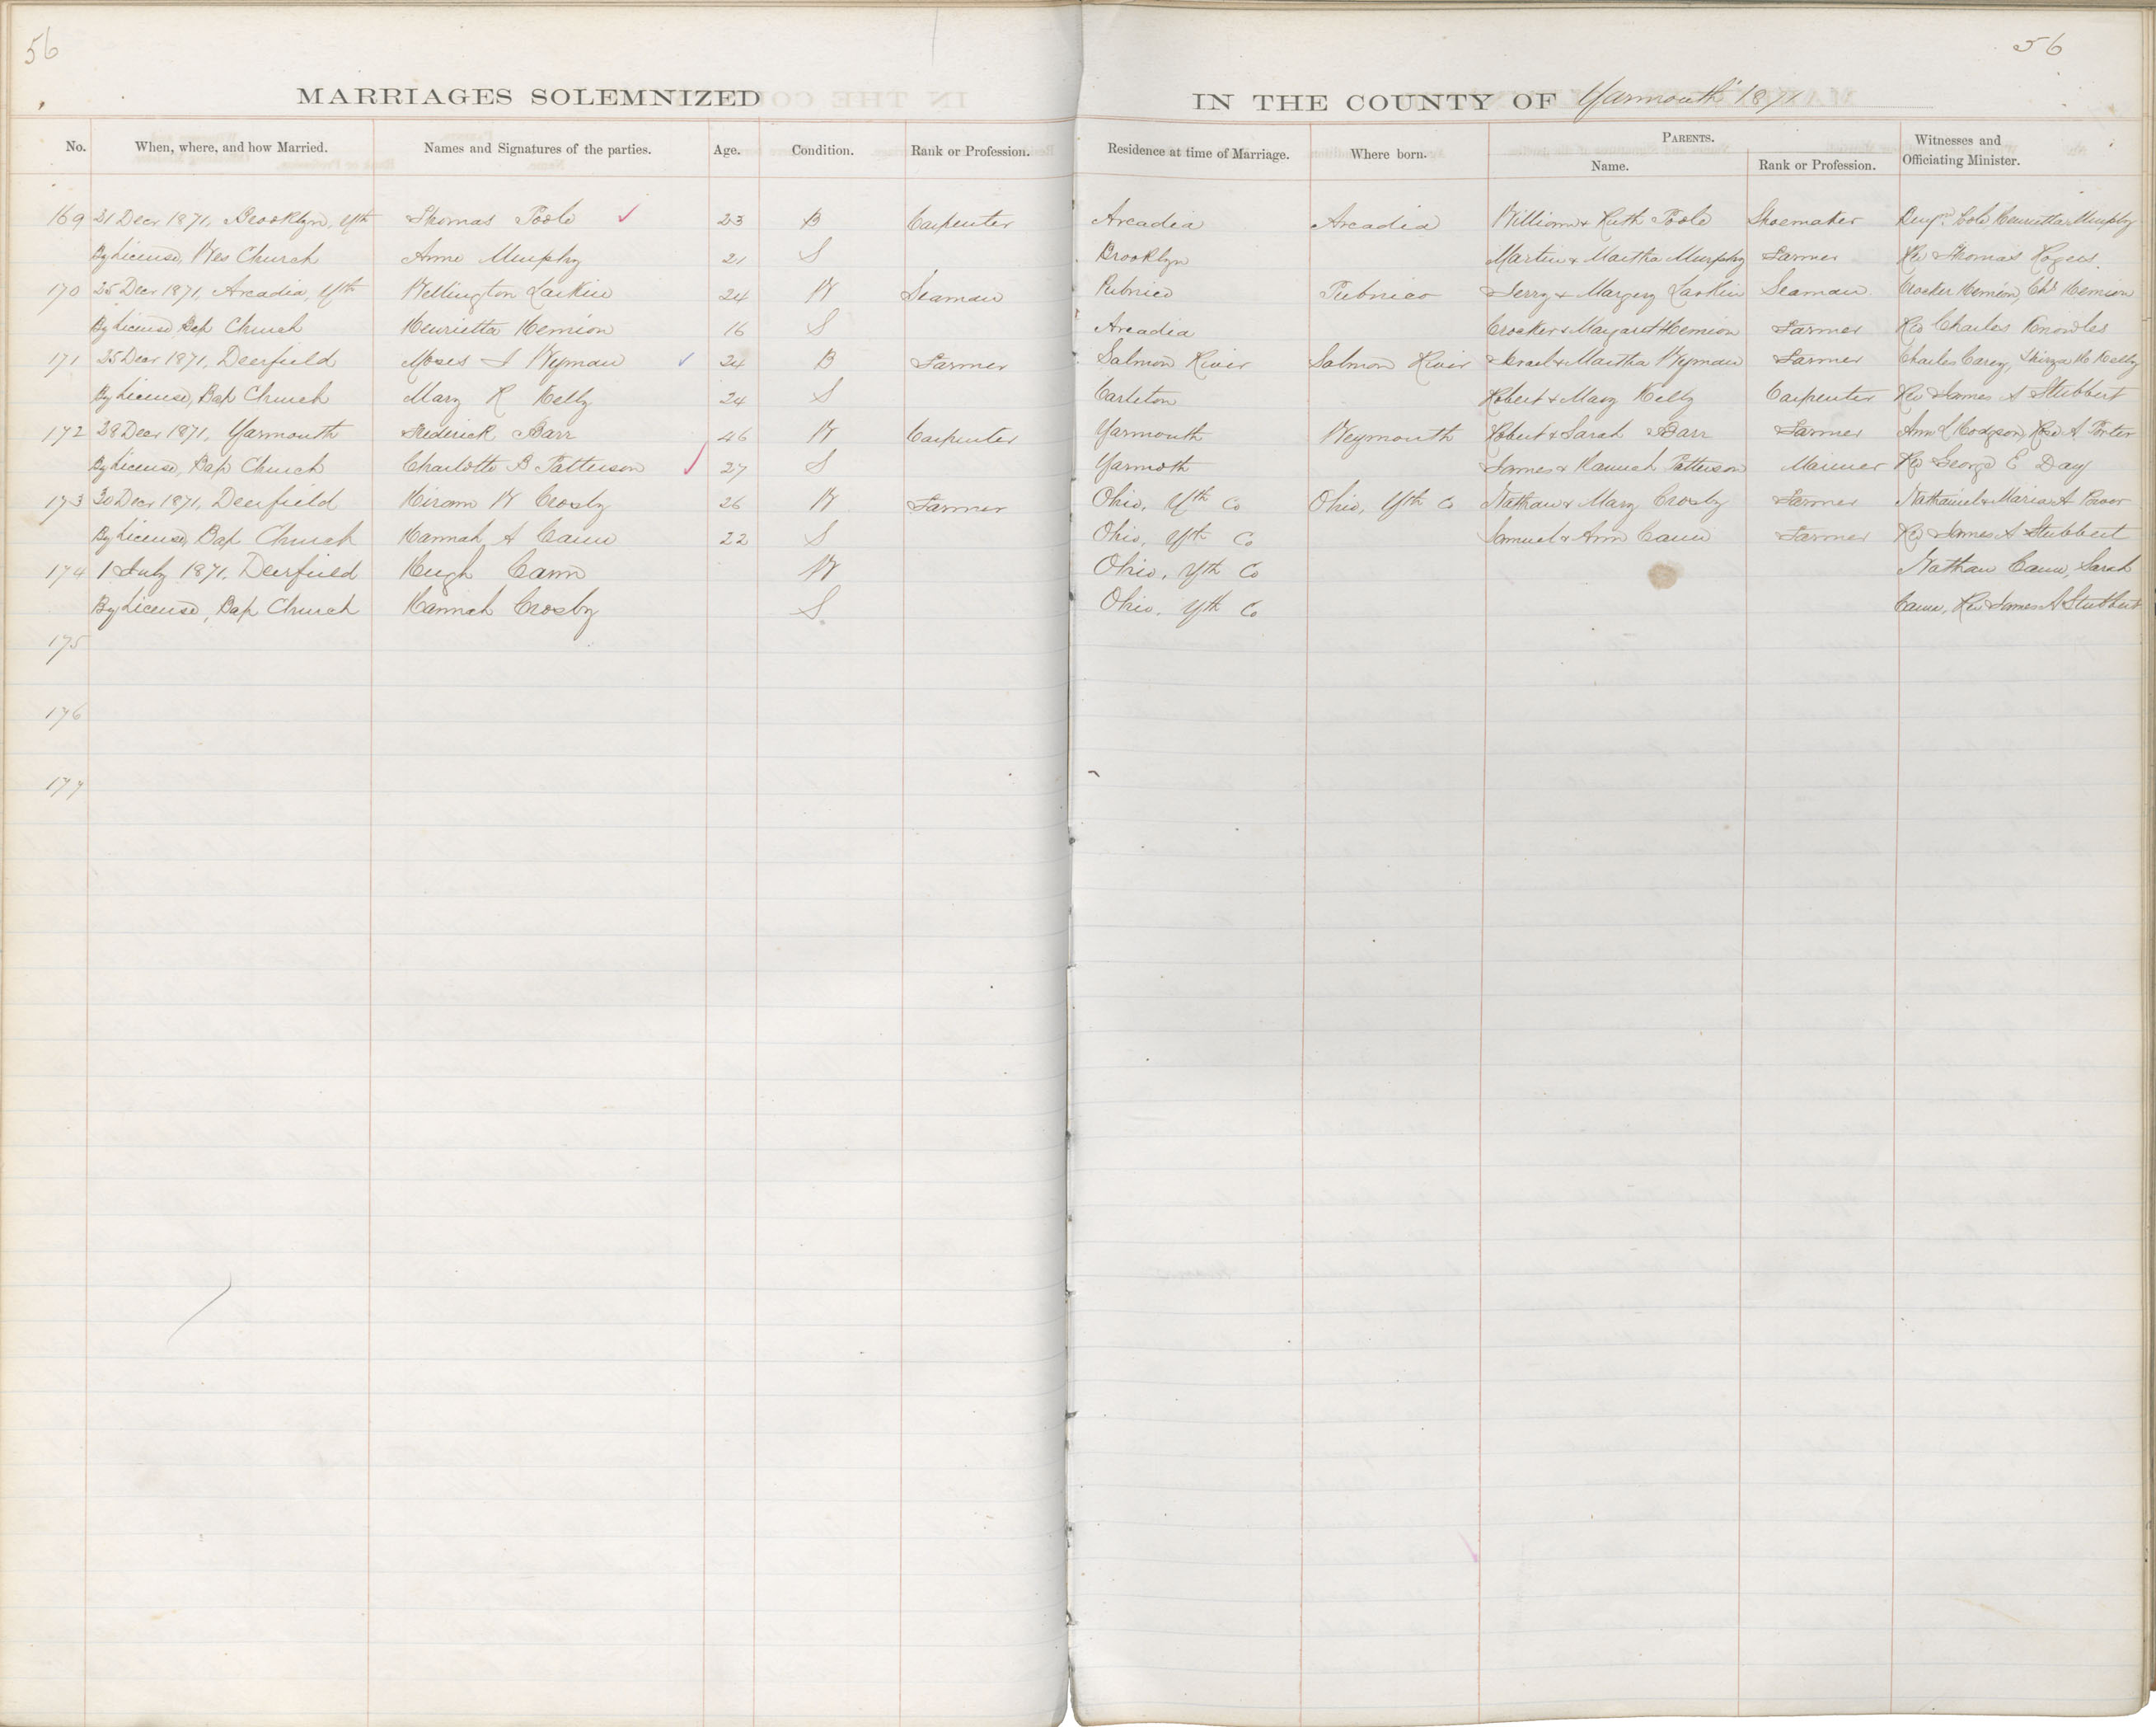 56
56
MARRIAGES SOLEMNIZED IN THE COUNTY OF Yarmouth 1871
No. When, where, and how Married. Names and Signatures of the parties. Age. Condition. Rank or Profession. Residence at time of Marriage. Where born. PARENTS. Name. Rank or Profession. Witnesses and Officiating Minister.
169 21 Decr 1871, Brooklyn, Yth Thomas Poole 23 B Carpenter Arcadia Arcadia William & Ruth Poole Shoemaker Benjn Cole Henrietta Murphy
By License, Wes Church Anne Murphy 21 S Brooklyn Martin & Martha Murphy Farmer Rev Thomas Rogers
170 25 Decr 1871, Arcadia, Yth Wellington Larkin 24 W Seaman Pubnico Pubnico Jerry & Margery Larkin Seaman Crocker Hemion, Chs Hemion
By License Bap Church Henrietta Hemion 16 S Arcadia Crocker & Margaret Hemion Farmer Rev Charles Knowles
171 25 Decr 1871, Deerfield Moses I Wyman 24 B Farmer Salmon River Salmon River Israel & Martha Wyman Farmer Charles Carey, Thirza H Kelly
By License, Bap Church Mary R Kelly 24 S Carleton Robert & Mary Kelly Carpenter Rev James A Stubbert
172 28 Decr 1871, Yarmouth Frederick Barr 46 W Carpenter Yarmouth Weymouth Robert & Sarah Barr Farmer Ann C Hodgson, Rose A Porter
By License, Bap Church Charlotte B Patterson 27 S Yarmoth James & Hannah Patterson Mariner Rev George E Day
173 30 Decr 1871, Deerfield Hiram W Crosby 26 W Farmer Ohio, Yth Co Ohio, Yth Co Nathan & Mary Crosby Farmer Nathaniel & Maria A
By License, Bap Church Hannah A Cann 22 S Ohio, Yth Co Samuel & Ann Cann Farmer Rev James A Stubbert
174 1 July 1871, Deerfield Hugh Cann W Ohio, Yth Co Nathan Cann, Sarah
By License, Bap Church Hannah Crosby S. Ohio, Yth Co Cann, Rev James A Stubbert
175
176
177